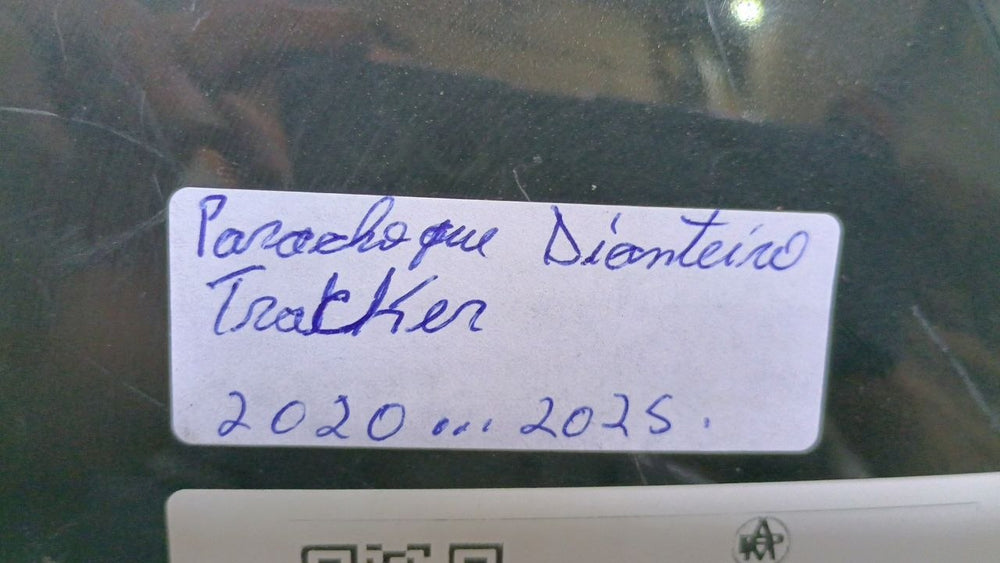 Parachoque Dianteiro
Tracker
2020... 2025.